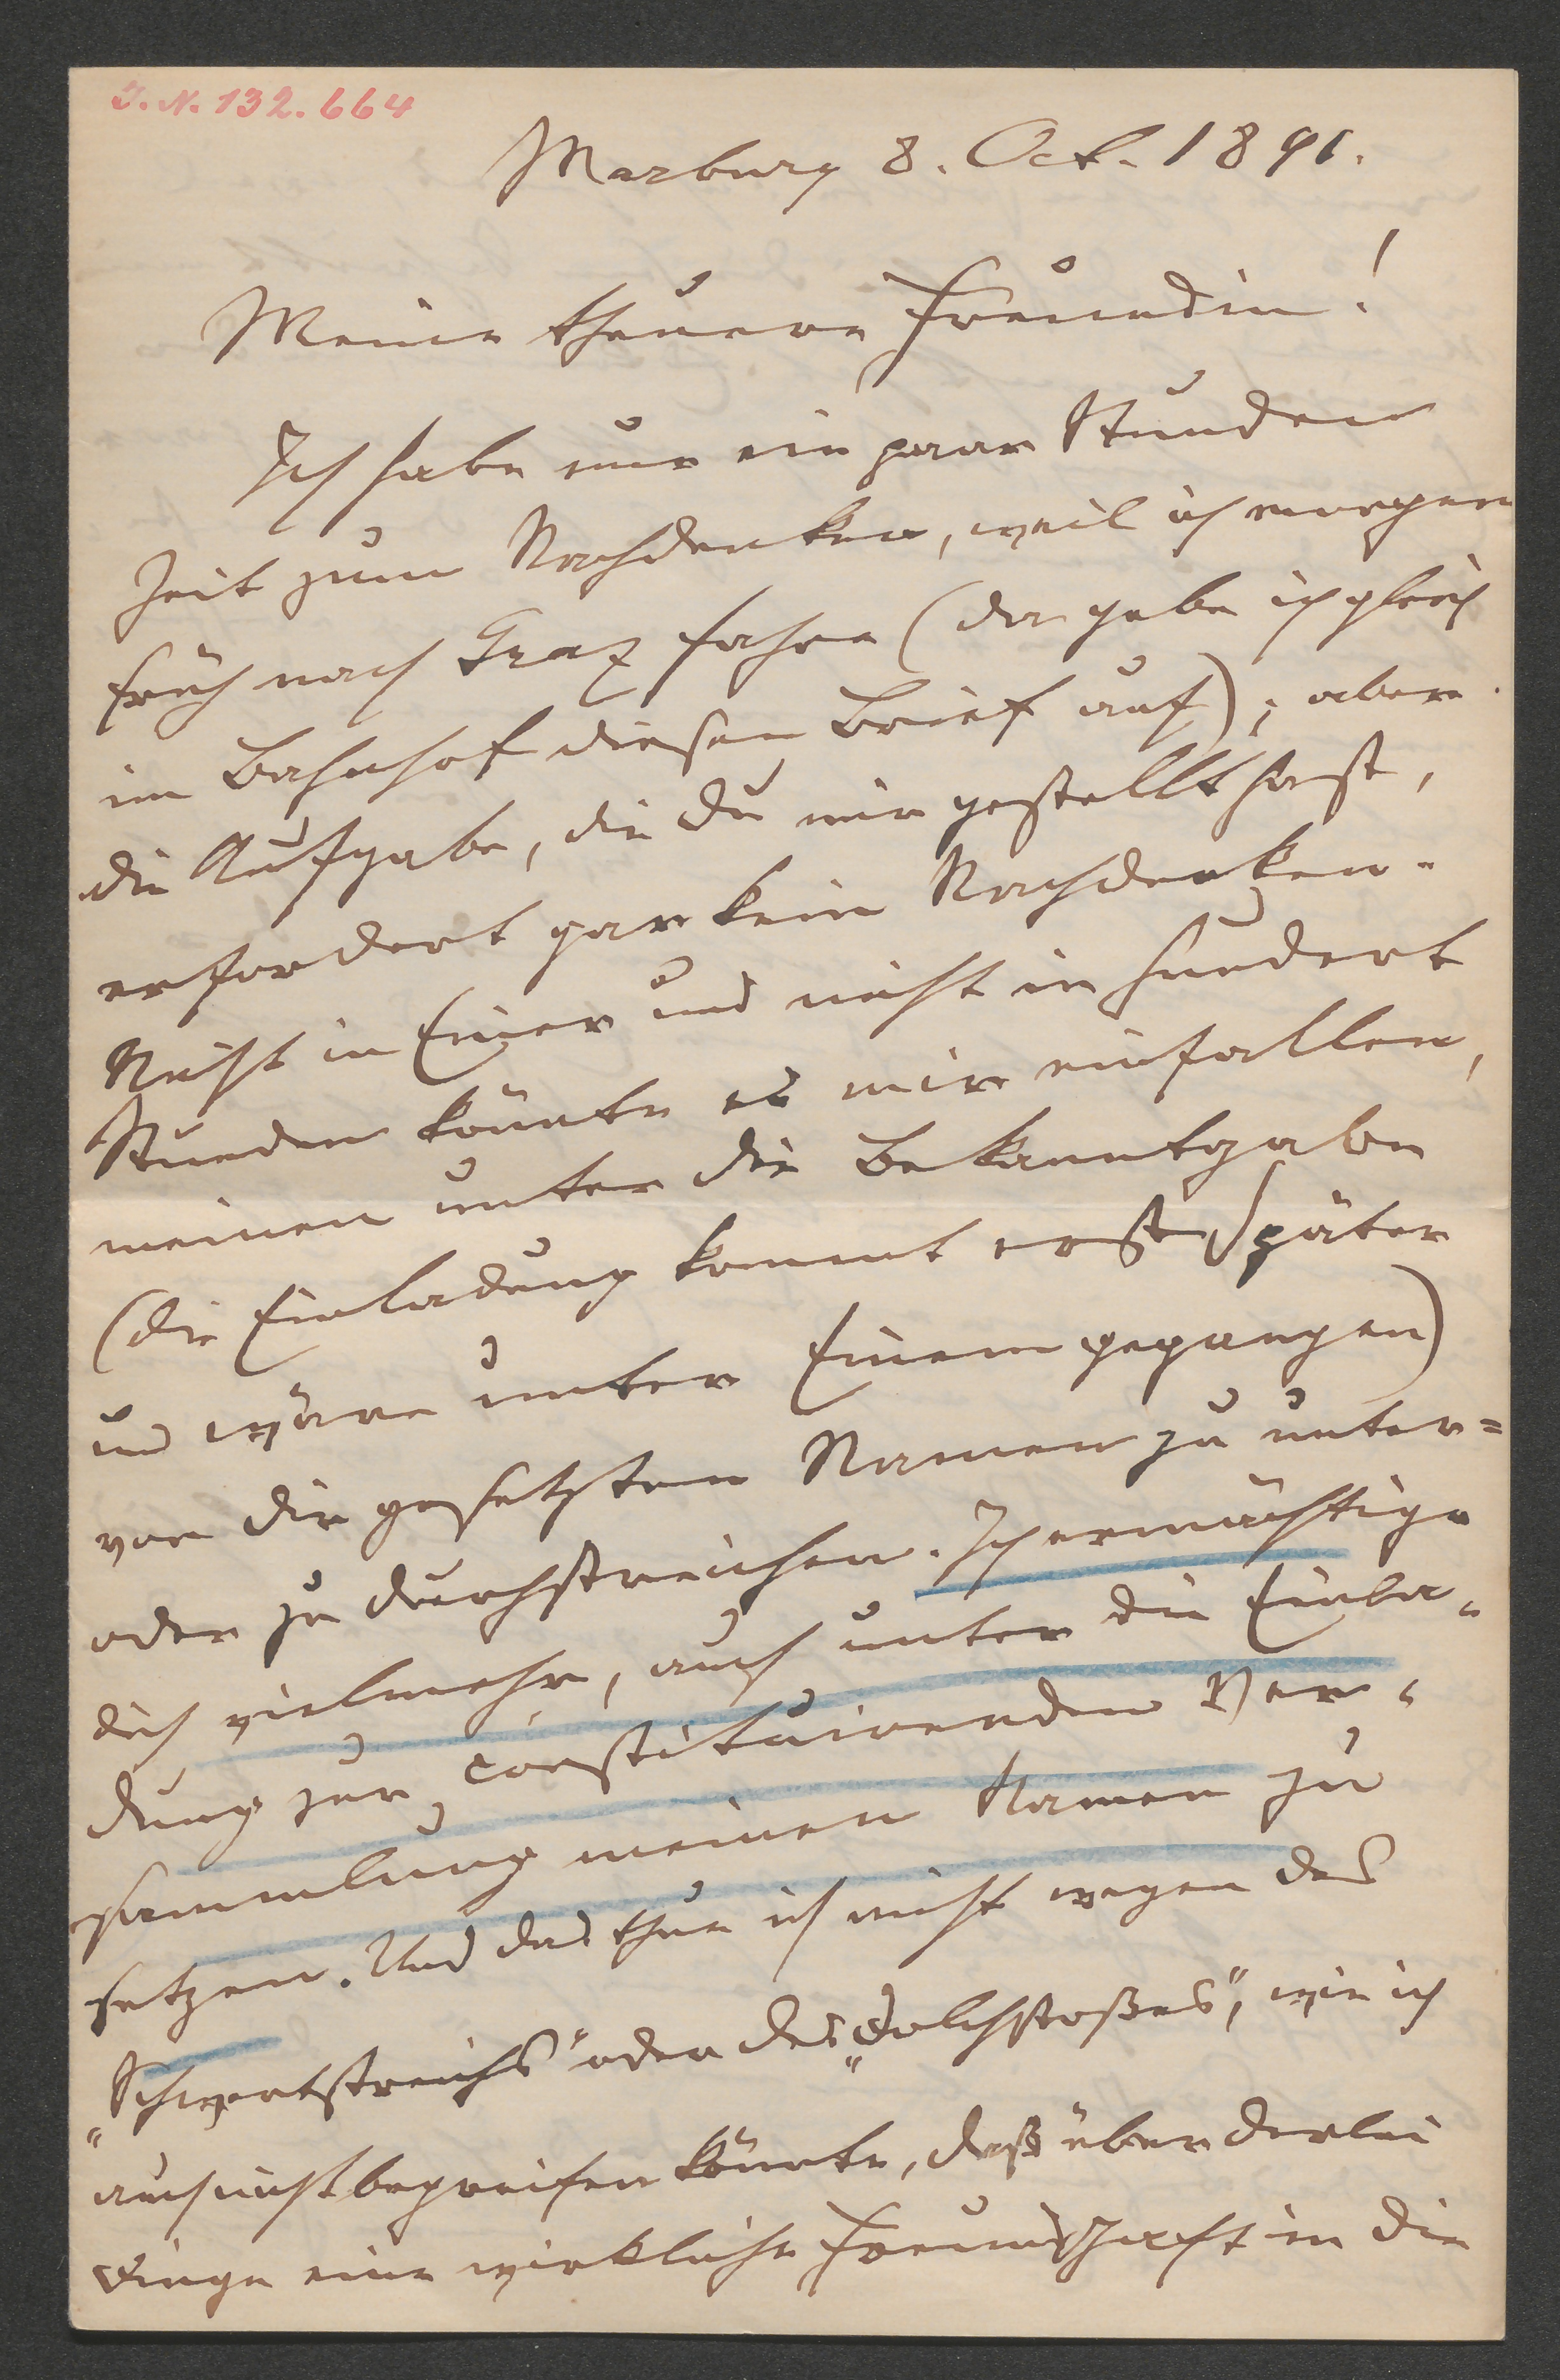 J. N. 132.664
Marburg 8. Oct. 1891.
Meine theuere Freundin!
Ich habe nur ein paar Stunden
Zeit zum Nachdenken, weil ich morgen
früh nach Graz fahre (da gebe ich gleich
im Bahnhof diesen Brief auf); aber
die Aufgabe, die Du mir gestellt hast,
erfordert gar kein Nachdenken.
Nicht in Einer und nicht in hundert
Stunden könnte es mir einfallen,
meinen unter die Bekanntgabe
(die Einladung kommt erst später
und wäre unter Einem gegangen)
von Dir gesetzten Namen zu unter=
oder zu durchstreichen. Ich ermächtige
dich vielmehr, auch unter die Einla-
dung zur constituirenden Ver-
sammlung meinen Namen zu
setzen. Und das thue ich nicht wegen des
„Schwertstreichs" oder des „Dolchstoßes", wie ich
auch nicht begreifen könnte, daß über derlei
Dinge eine wirkliche Freundschaft in die